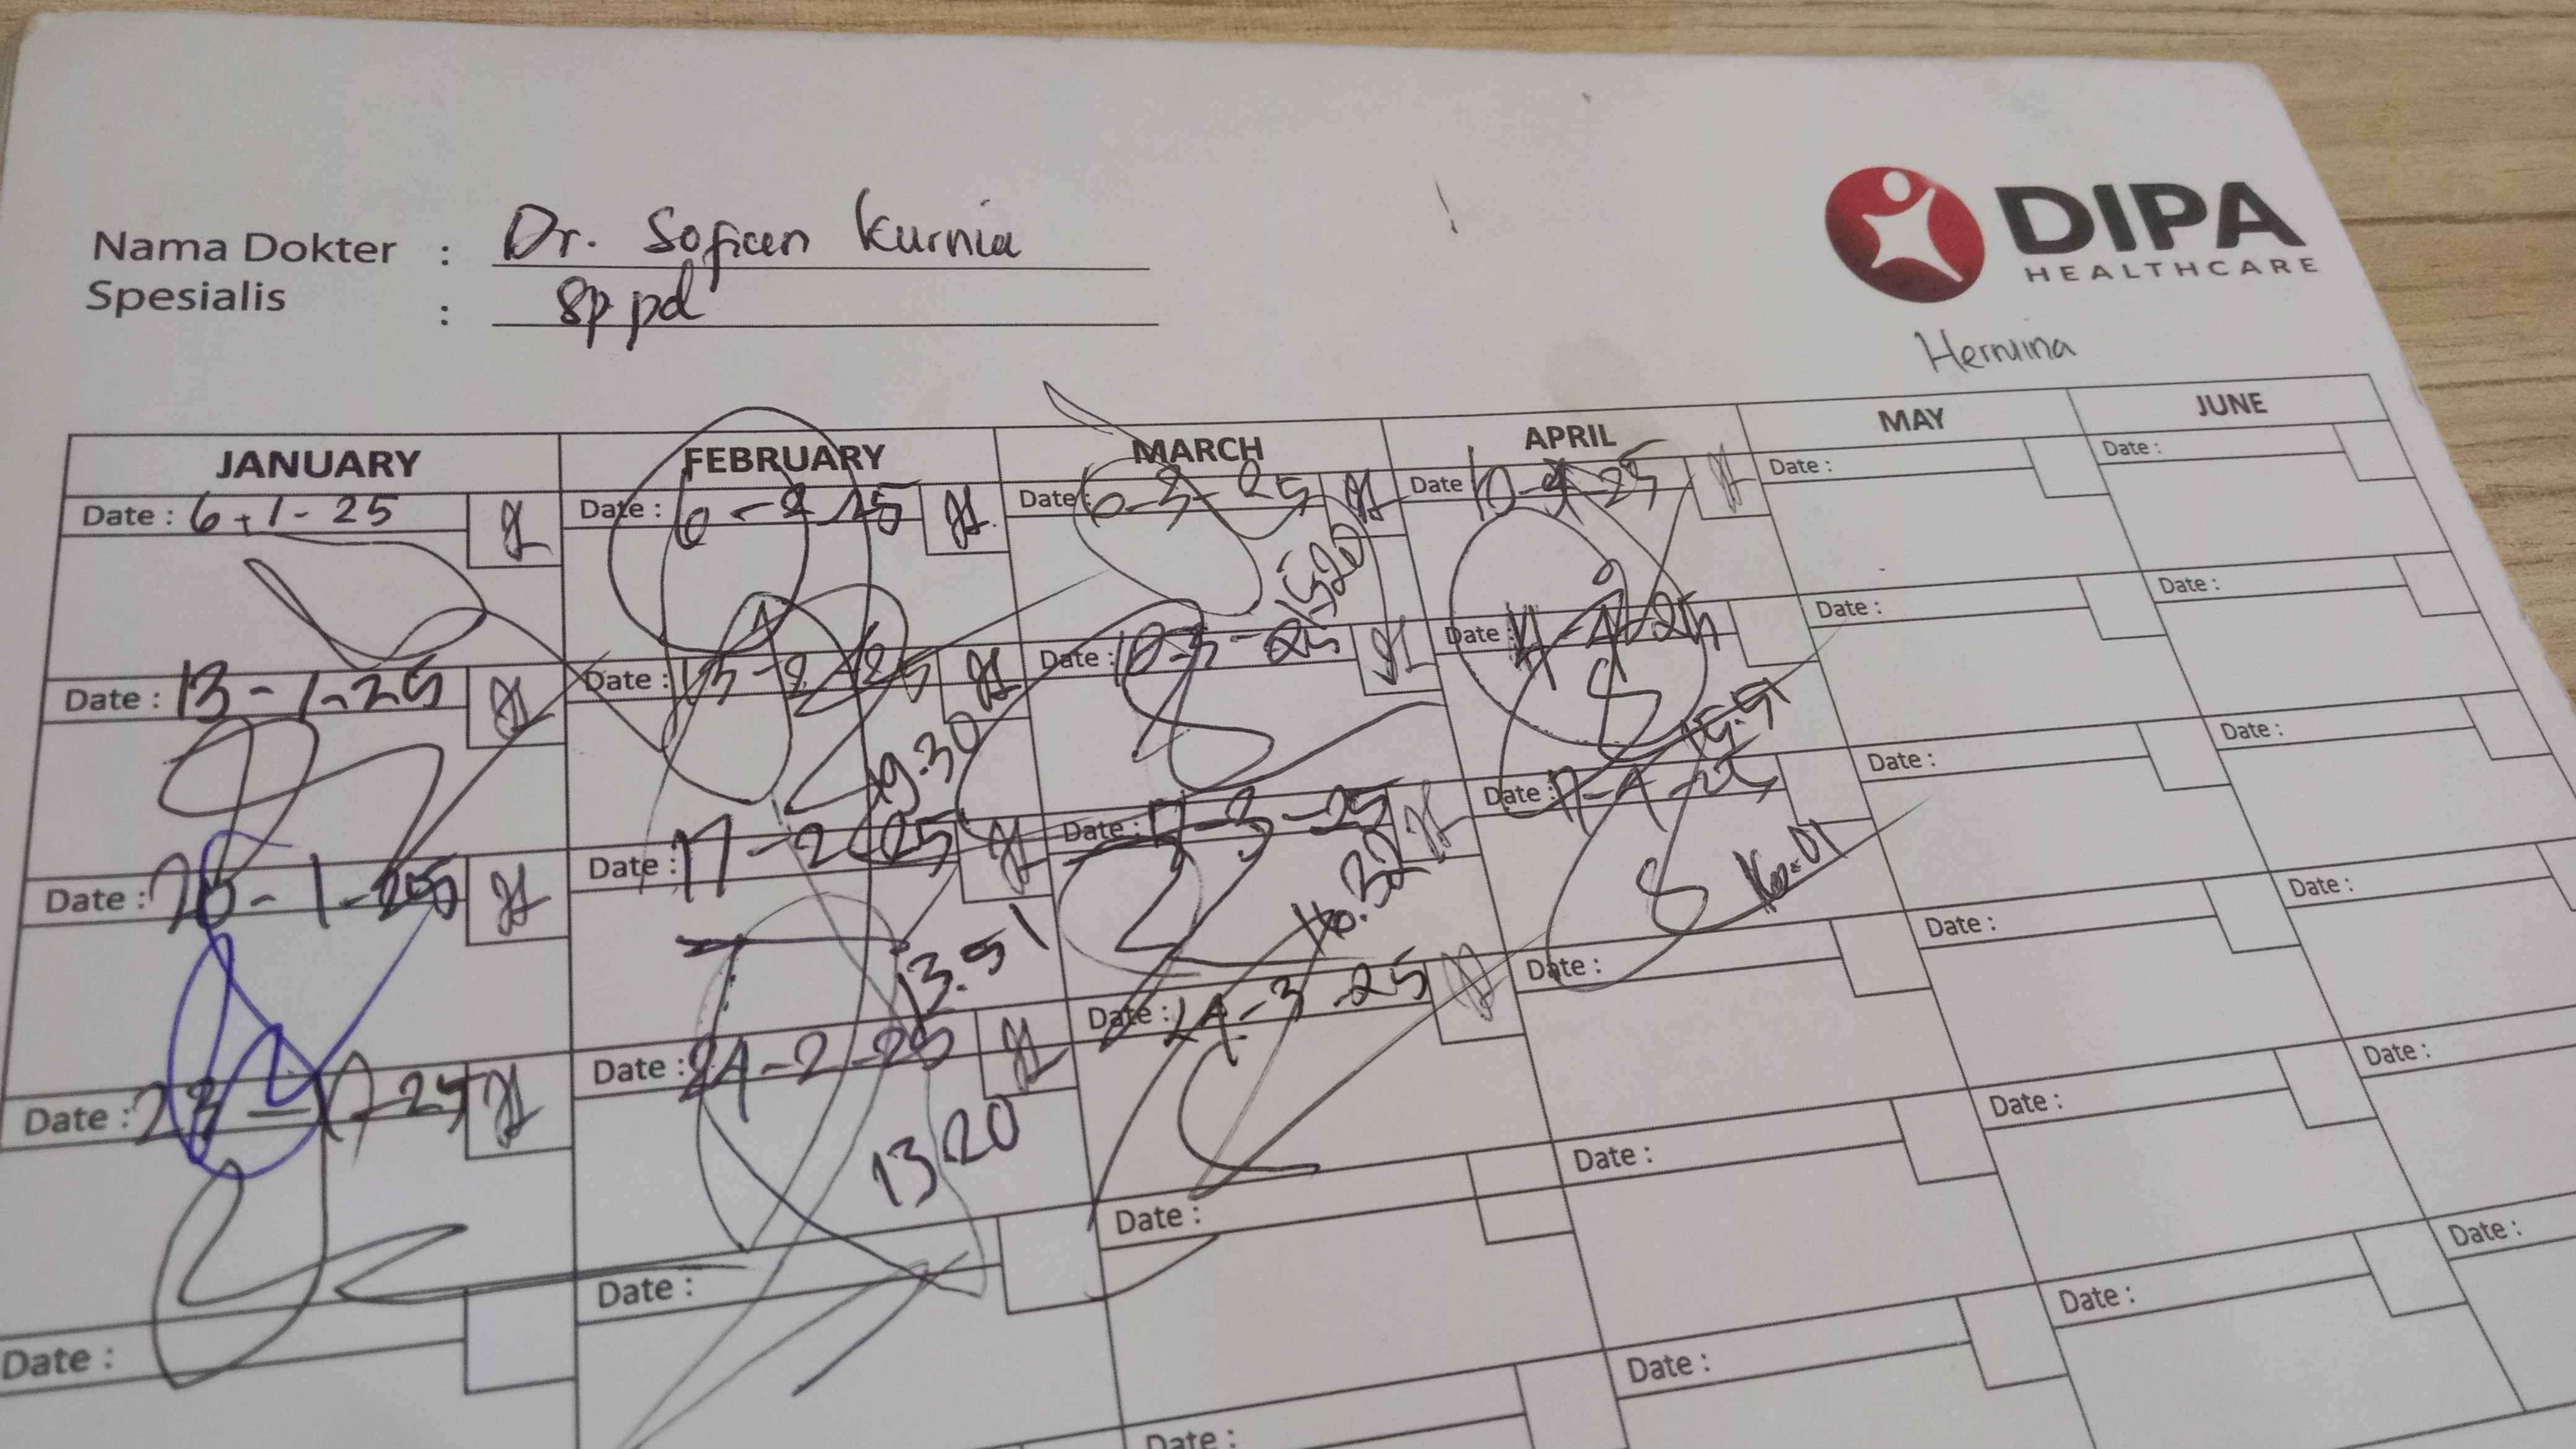 Nama Dokter : Dr. Sofian Kurnia
Spesialis : Sp pd
DIPA
HEALTHCARE
Hermina
JANUARY FEBRUARY MARCH APRIL MAY JUNE
Date : 6-1-25 Date : 6-2-25 Date : 6-3-25 Date : 10-4-25 Date : Date :
15:20
Date : 13-1-25 Date : 13-2-25 Date : 10-3-25 Date : Date : Date :
19.30 15.51
Date : Date : 17-2-25 Date : 17-3-25 Date : 17-4-25 Date : Date :
13.51 16.32 16.01
Date : 23-1-25 Date : 24-2-25 Date : 24-3-25 Date : Date : Date :
13 20
Date : Date : Date : Date : Date : Date :
Date : Date : Date : Date :